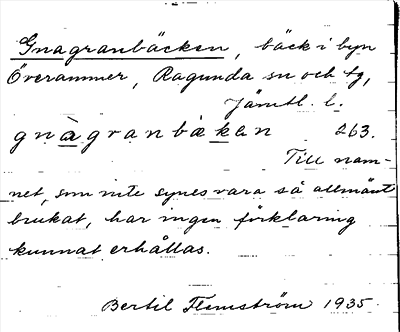 Gnagranbäcken, bäck i byn
Överammer, Ragunda sn och tg,
Jämtl. l.
gnàgranbäkən 263.
Till nam-
net, som inte synes vara så allmänt
brukat, har ingen förklaring
kunnat erhållas.
Bertil Flemström 1935.